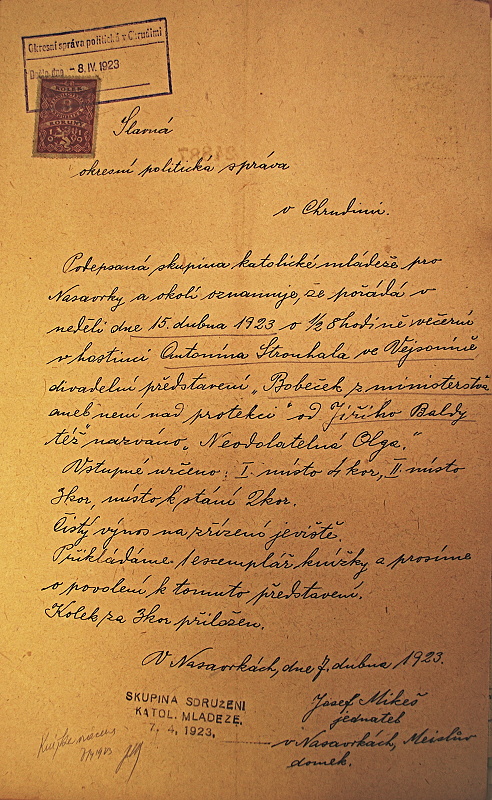 Okresní správa politická v Chrudimi
Došlo dne - 8. IV. 1923
KOLEK
3
KORUNY
Slavná
okresní politická správa
v Chrudimi.
Podepsaná skupina katolické mládeže pro
Nasavrky a okolí oznamuje, že pořádá v
neděli dne 15. dubna 1923 o ½ 8 hodině večerní
v hostinci Antonína Strouhala ve Vejsoníně
divadelní představení „Bobeček z ministerstva
aneb není nad protekci" od Jiřího Baldy
též nazváno „Neodolatelná Olga."
Vstupné určeno: I. místo 4 kor, II. místo
3 kor, místo k stání 2 kor.
Čistý výnos na zřízení jeviště.
Přikládáme 1 escemplář knížky a prosíme
o povolení k tomuto představení.
Kolek za 3 kor přiložen.
V Nasavrkách, dne 7. dubna 1923.
SKUPINA SDRUŽENÍ
KATOL. MLÁDEŽE.
7. 4. 1923.
Josef Mikeš
jednatel
v Nasavrkách, Meislův
domek.